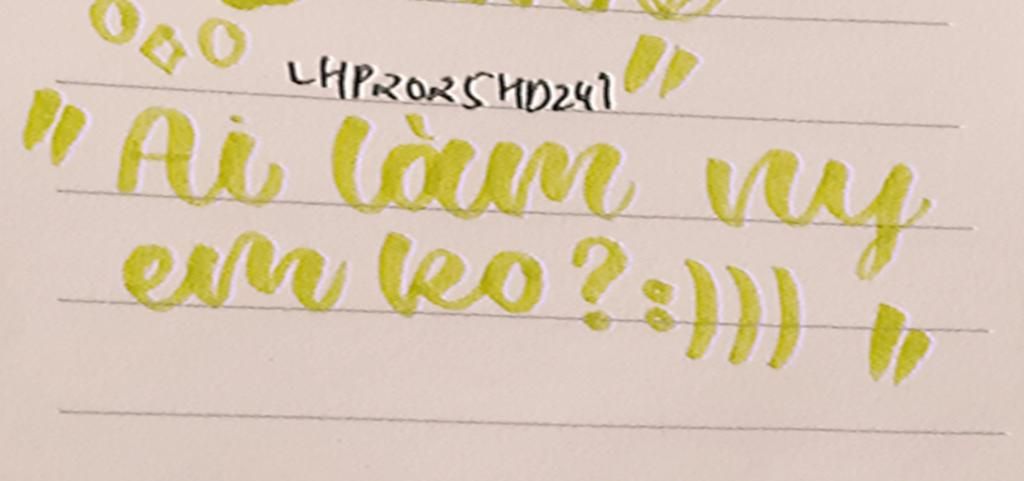 LHP2025HD241 "
" Ai làm ny
em ko? :))) "